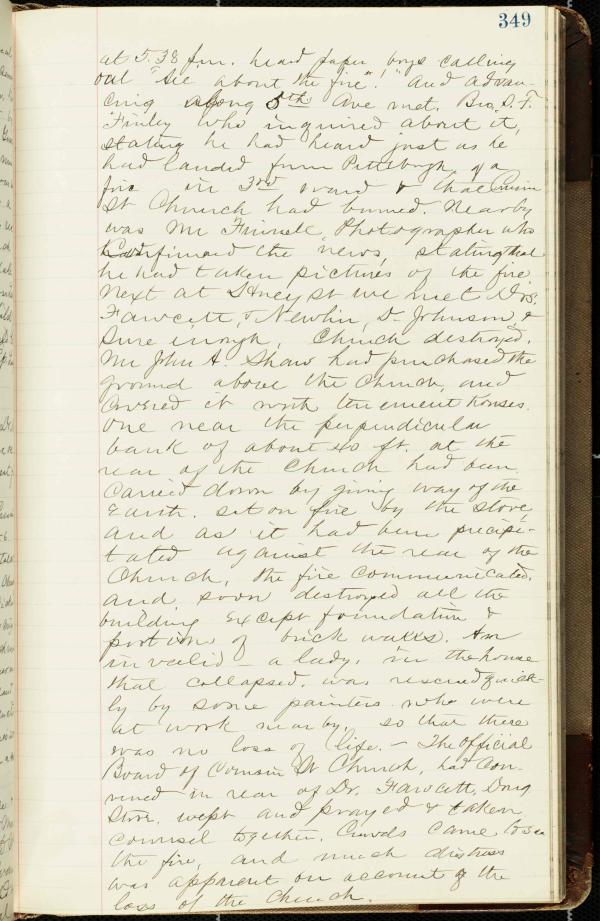 349
at 5.38 p.m. heard paper boys calling
out "all about the fire"! And advan-
cing along 5th Ave met. Bro. S. F.
Finley who inquired about it,
stating he had heard just as he
had landed from Pittsburgh, of a
fire in 3rd ward & that Cousin
St Church had burned. Nearby
was Mr Photographer who
confirmed the news, stating that
he had taken pictures of the fire
Next at St we met Drs.
Fawcett, & Newlin, D. Johnson, &
sure enough, Church destroyed.
Mr John A. Shaw had purchased the
ground above the Church, and
covered it with tenement houses.
one near the perpendicular
bank of about 40 ft. at the
rear of the Church had been
carried down by giving way of the
Earth. set on fire by the stove,
and as it had been precipi-
tated against the rear of the
Church, the fire communicated,
and soon destroyed all the
building except foundation &
portions of brick walls. An
invalid - a lady, in the house
that collapsed, was rescued quick-
ly by some painters who were
at work nearby, so that there
was no loss of life. - The official
Board of Cousin St Church, had con-
vened in rear of Dr. Fawcett, Drug
Store, wept and prayed & taken
counsel together. Crowds came to see
the fire, and much distress
was apparent on account of the
loss of the Church.